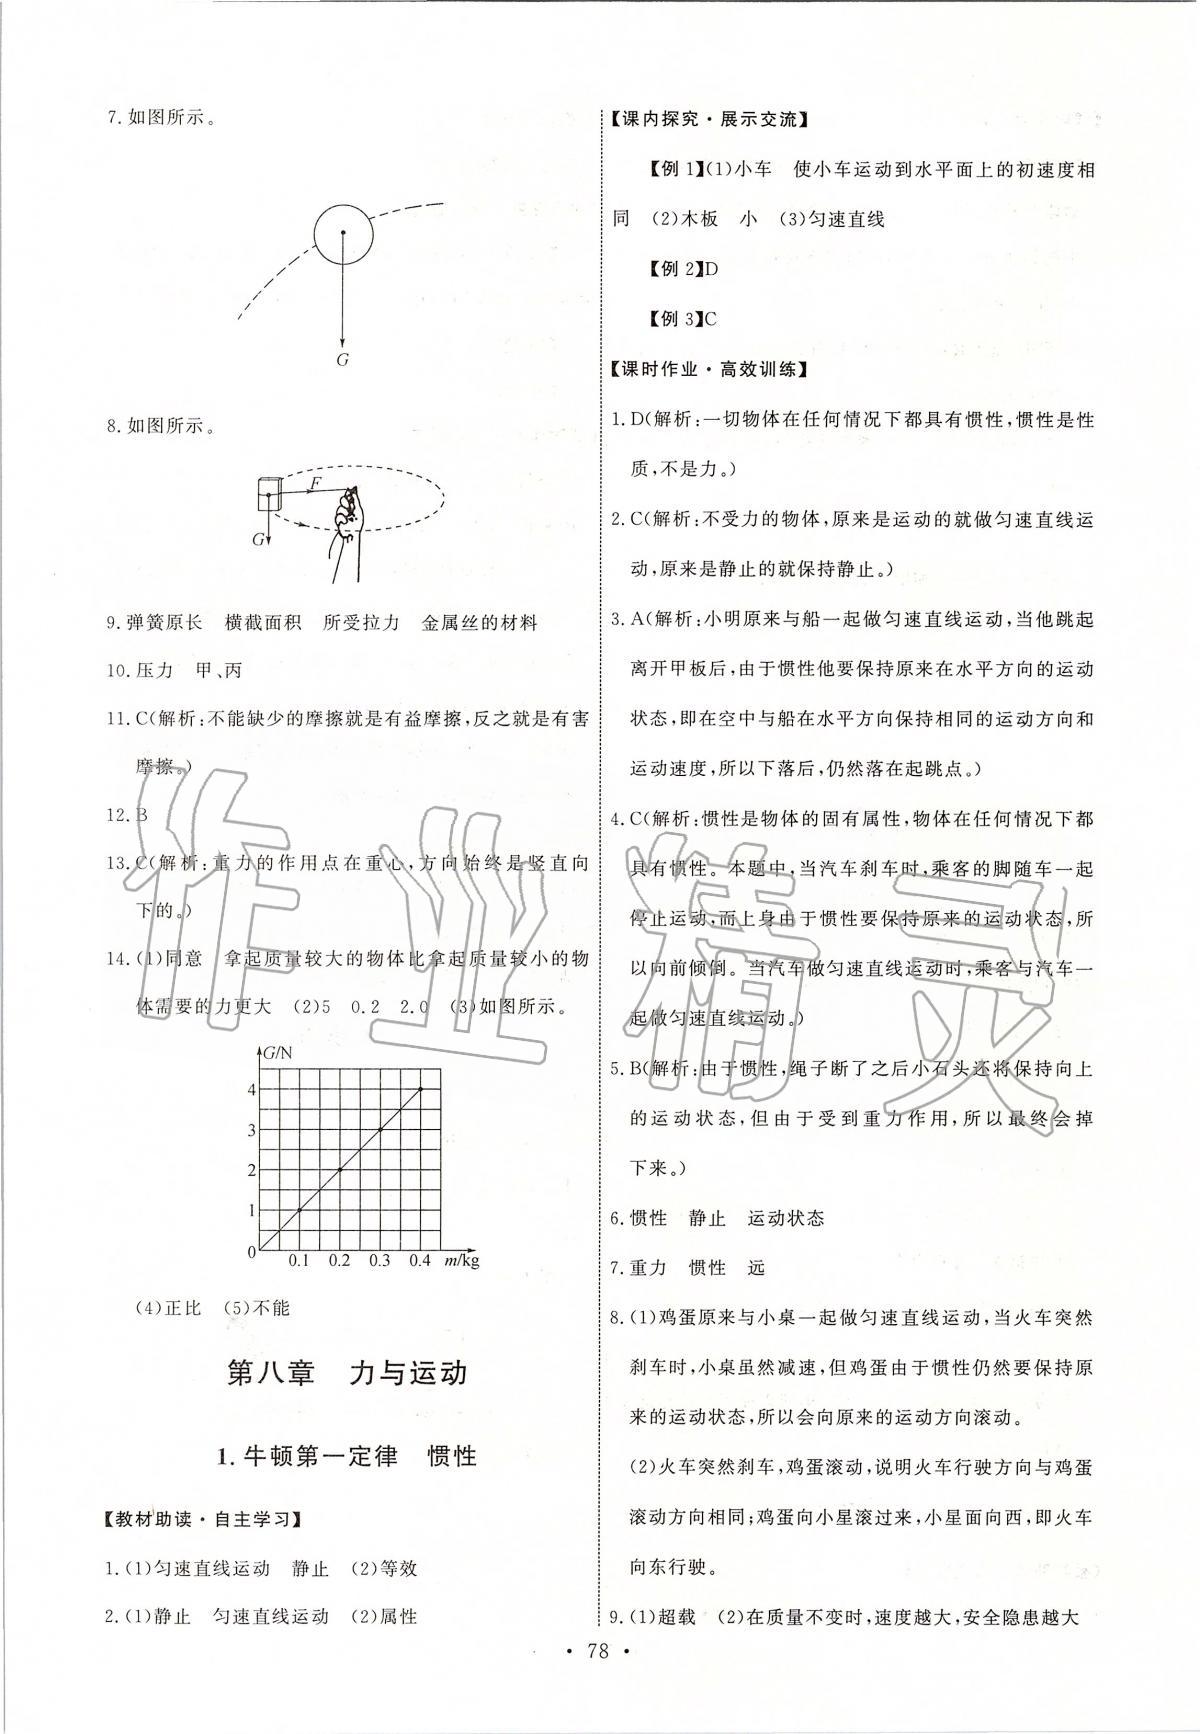 7.如图所示。
G
8.如图所示。
F
G
9.弹簧原长　横截面积　所受拉力　金属丝的材料
10.压力　甲、丙
11.C(解析:不能缺少的摩擦就是有益摩擦,反之就是有害
摩擦。)
12.B
13.C(解析:重力的作用点在重心,方向始终是竖直向
下的。)
14.(1)同意　拿起质量较大的物体比拿起质量较小的物
体需要的力更大　(2)5　0.2　2.0　(3)如图所示。
G/N
4
3
2
1
0
0.1 0.2 0.3 0.4 m/kg
(4)正比　(5)不能
第八章　力与运动
1.牛顿第一定律　惯性
【教材助读·自主学习】
1.(1)匀速直线运动　静止　(2)等效
2.(1)静止　匀速直线运动　(2)属性
【课内探究·展示交流】
【例1】(1)小车　使小车运动到水平面上的初速度相
同　(2)木板　小　(3)匀速直线
【例2】D
【例3】C
【课时作业·高效训练】
1.D(解析:一切物体在任何情况下都具有惯性,惯性是性
质,不是力。)
2.C(解析:不受力的物体,原来是运动的就做匀速直线运
动,原来是静止的就保持静止。)
3.A(解析:小明原来与船一起做匀速直线运动,当他跳起
离开甲板后,由于惯性他要保持原来在水平方向的运动
状态,即在空中与船在水平方向保持相同的运动方向和
运动速度,所以下落后,仍然落在起跳点。)
4.C(解析:惯性是物体的固有属性,物体在任何情况下都
具有惯性。本题中,当汽车刹车时,乘客的脚随车一起
停止运动,而上身由于惯性要保持原来的运动状态,所
以向前倾倒。当汽车做匀速直线运动时,乘客与汽车一
起做匀速直线运动。)
5.B(解析:由于惯性,绳子断了之后小石头还将保持向上
的运动状态,但由于受到重力作用,所以最终会掉
下来。)
6.惯性　静止　运动状态
7.重力　惯性　远
8.(1)鸡蛋原来与小桌一起做匀速直线运动,当火车突然
刹车时,小桌虽然减速,但鸡蛋由于惯性仍然要保持原
来的运动状态,所以会向原来的运动方向滚动。
(2)火车突然刹车,鸡蛋滚动,说明火车行驶方向与鸡蛋
滚动方向相同;鸡蛋向小星滚过来,小星面向西,即火车
向东行驶。
9.(1)超载　(2)在质量不变时,速度越大,安全隐患越大
• 78 •
作业精灵